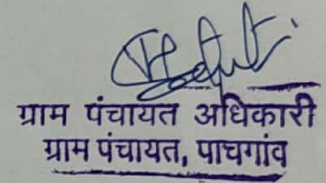 ग्राम पंचायत अधिकारी
ग्राम पंचायत, पाचगांव